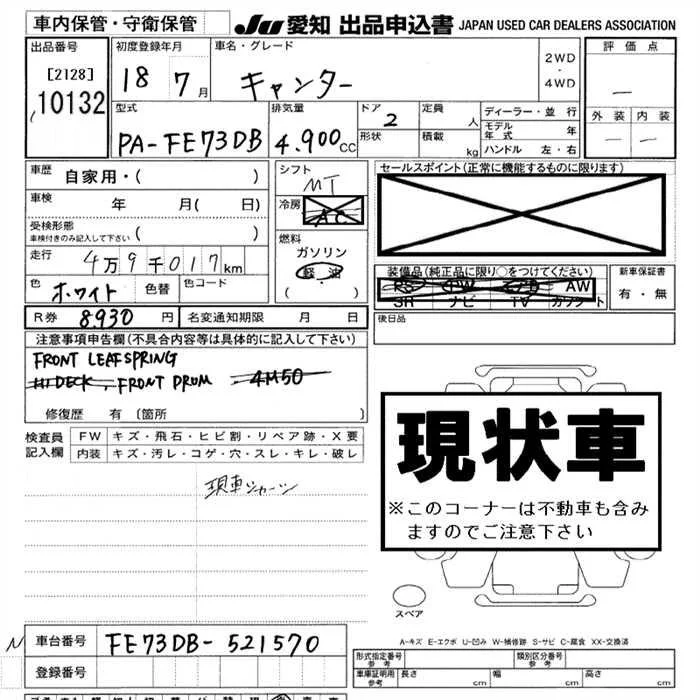 車内保管・守衛保管 JU 愛知 出品申込書 JAPAN USED CAR DEALERS ASSOCIATION
出品番号 初度登録年月 車名・グレード 2WD・4WD 評価点
[2128] 18 7月 キャンター
10132
型式 排気量 ドア 2 定員 人 ディーラー・並行 外装 内装
PA-FE73DB 4.900cc 形状 積載 kg モデル年式 年
ハンドル 左・右
車歴 自家用・( ) シフト MT セールスポイント(正常に機能するものに限ります)
車検 年 月( 日) 冷房 AC
受検形態 車検付きのみ記入して下さい ( ) 燃料
走行 4万9千017km ガソリン
軽・油
( )
装備品(純正品に限り○をつけてください) 新車保証書
AW 有・無
SR ナビ TV カワシート
色 ホワイト 色替 色コード
R券 8930円 名変通知期限 月 日 後日品
注意事項申告欄(不具合内容等は具体的に記入して下さい)
FRONT LEAFSPRING
HIDECK, FRONT DRUM 4M50
修復歴 有 〔箇所 〕
検査員記入欄 FW キズ・飛石・ヒビ割・リペア跡・X要
内装 キズ・汚レ・コゲ・穴・スレ・キレ・破レ
現車
現状車
※このコーナーは不動車も含み
ますのでご注意下さい
スペア
A-キズ E-エクボ U-凹み W-補修跡 S-サビ C-腐食 XX-交換済
N 車台番号 FE73DB-521570
登録番号
形式指定番号 参考 類別区分番号 参考
車庫証明用 参考 長さ cm 幅 cm 高さ cm